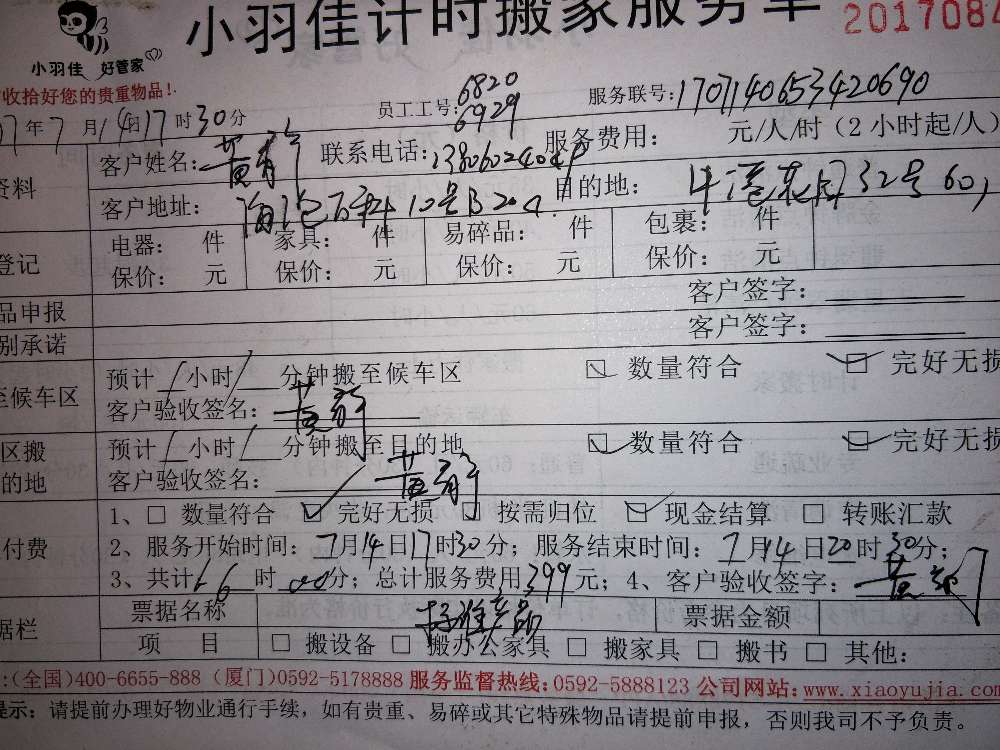 小羽佳计时搬家服务单
2017084
小羽佳 好管家
收拾好您的贵重物品!
员工工号: 6820 6929
服务联号: 1707140653420690
年7月14日17时30分
客户姓名: 联系电话: 服务费用: 元/人/时(2小时起/人)
资料
客户地址: 10号B204 目的地: 32号60
登记
电器: 件 家具: 件 易碎品: 件 包裹: 件
保价: 元 保价: 元 保价: 元 保价: 元
品申报 客户签字:
别承诺 客户签字:
至候车区
预计 / 小时 / 分钟搬至候车区 数量符合 完好无损
客户验收签名:
区搬
的地
预计 / 小时 / 分钟搬至目的地 数量符合 完好无损
客户验收签名:
付费
1、□ 数量符合 完好无损 按需归位 现金结算 □ 转账汇款
2、服务开始时间: 7月14日17时30分; 服务结束时间: 7月14日20时30分;
3、共计 时00分; 总计服务费用399元; 4、客户验收签字:
据栏
票据名称 票据金额
项 目 □ 搬设备 □ 搬办公家具 □ 搬家具 □ 搬书 □ 其他:
:(全国)400-6655-888 (厦门)0592-5178888 服务监督热线:0592-5888123 公司网站:www.xiaoyujia.com
提示: 请提前办理好物业通行手续, 如有贵重、易碎或其它特殊物品请提前申报, 否则我司不予负责。